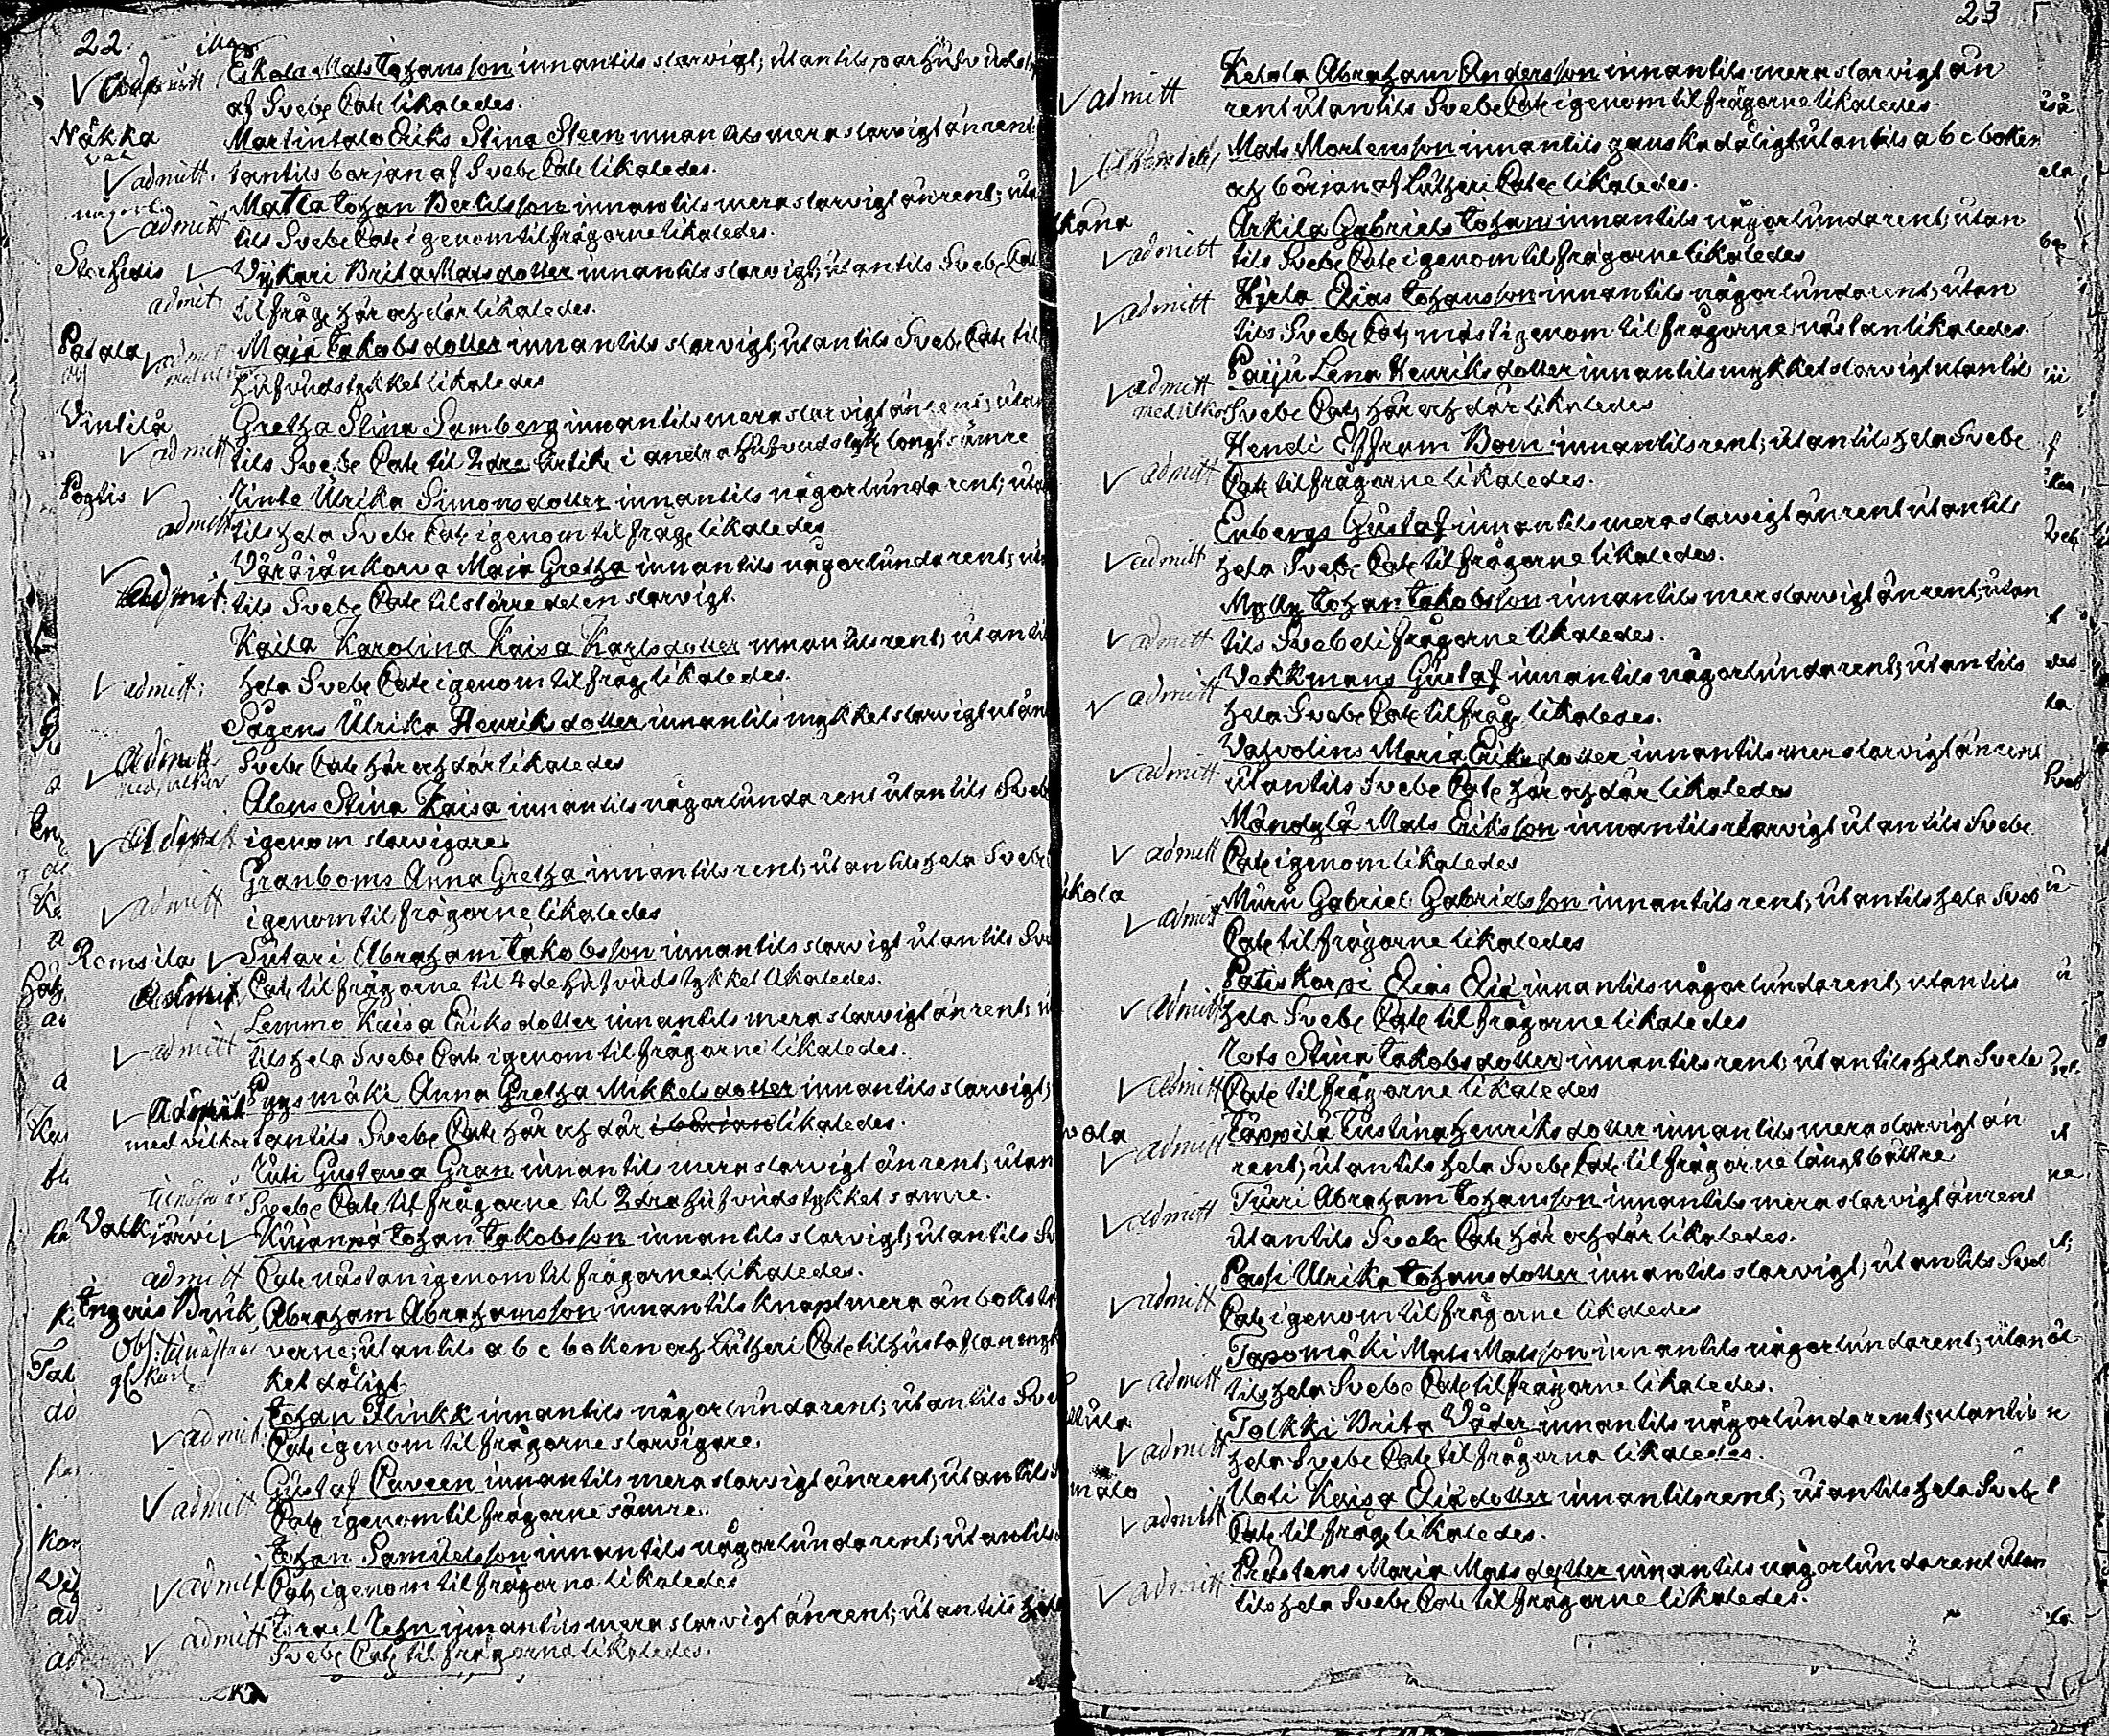 22.
admitt Eskola Mats Johansson innantils slarvigt; utantils par hufvudst
af Svebe Cate likaledes.
Näkka Martintalo Eriks Stina Steen innantils mera slarvigt än rent
admitt. tantils början af Svebe Cate likaledes.
Matta Johan Bertilsson innantils mera slarvigt än rent; uta
admitt tils Svebe Cate igenom til frågorne likaledes.
Storhedis Wijkari Brita Matsdotter innantils slarvigt, utantils Svebe Cate
admit. til fråge här och där likaledes.
Patala Maja Jakobsdotter innantils slarvigt, utantils Svebe Cate til
hufvudstykket likaledes
Wintila Gretha Stina Samberg innantils mera slarvigt än rent; utan
admitt tils Svebe Cate til 2dra Artikl i andra hufvudstyk: longt sämre
Poghis Ulrika Simonsdotter innantils någorlunda rent; uta
admitt tils hela Svebe Cate igenom til fråge likaledes
Maja Gretha innantils någorlunda rent;
Admit: tils Svebe Cate til större delen slarvigt.
Kaila Karolina Kaisa Karlsdotter innantils rent, utantil
admitt; hela Svebe Cate igenom til fråge likaledes.
Sågens Ulrika Henriksdotter innantils mykket slarvigt utan
Admitt Svebe Cate här och där likaledes
med vilkor
Alens Stina Kaisa innantils någorlunda rent utantils Sveb
Admitt igenom slarvigare
Granboms Anna Gretha innantils rent; utantils hela Svebe
admitt igenom til frågorne likaledes
Romsila Sutari Abraham Jakobsson innantils slarvigt utantils Sve
Admit Cate til frågorne til 4de hufvudstykket likaledes.
Lemmo Kaisa Eriksdotter innantils mera slarvigt än rent;
admitt tils hela Svebe Cate igenom til frågorne likaledes.
Admitt Pyysmäki Anna Gretha Mikkelsdotter innantils slarvigt;
med vilkor tantils Svebe Cate här och där i början likaledes.
Juti Gustava Gran innantils mera slarvigt än rent; utan
Svebe Cate til frågorne til 2dra hufvudstykket sämre.
Walkjärvi Kujanpä Johan Jakobsson innantils slarvigt; utantils Sv
admitt Cate nästan igenom til frågorne likaledes.
Ingeris Bruk, Abraham Abrahamsson innantils knapt mera än boksta
verne; utantils a b c boken och Lutheri Cate til hustaflan myk
ket dåligt.
Johan Flinkk innantils någorlunda rent; utantils Sve
admit. Cate igenom til frågorne slarvigare.
Gustaf Caveen innantils mera slarvigt än rent; utantils
admitt Cate igenom til frågorne sämre.
Johan Samuelsson innantils någorlunda rent; utantils
admitt Cate igenom til frågorna likaledes
Israel Lehn innantils mera slarvigt än rent; utantils hela
admitt Svebe Cate til frågorna likaledes.
23
Ketola Abraham Andersson innantils mera slarvigt än
admitt rent utantils Svebe Cate igenom til frågorne likaledes.
Mats Mortensson innantils ganska dåligt utantils a b c boken
och början af Lutheri Cate likaledes.
Arkila Gabriels Johan innantils någorlunda rent, utan
admitt tils Svebe Cate igenom til frågorne likaledes
Hjerla Elias Johansson innantils någorlunda rent, utan
admitt tils Svebe Cate mäst igenom til frågorne nästan likaledes.
Paiju Lena Henriksdotter innantils mykket slarvigt utantils
admitt med vilkor Svebe Cate här och där likaledes
Hendi Effram Bom innantils rent; utantils hela Svebe
admitt Cate til frågorne likaledes.
Enbergs Gustaf innantils mera slarvigt än rent utantils
admitt hela Svebe Cate til frågorne likaledes.
Mylly Johan Jakobsson innantils mer slarvigt än rent; utan
admitt tils Svebeli frågorne likaledes.
Wekkmans Gustaf innantils någorlunda rent; utantils
admitt hela Svebe Cate til fråge likaledes.
Wahvolins Maria Eriksdotter innantils mer slarvigt än rent
admitt utantils Svebe Cate här och där likaledes
Mändylä Mats Eriksson innantils slarvigt utantils Svebe
admitt Cate igenom likaledes
Muru Gabriel Gabrielsson innantils rent, utantils hela Sveb
admitt Cate til frågorne likaledes
Patiskorpi Elias Eliä innantils någorlunda rent, utantils
admitt hela Svebe Cate til frågorne likaledes
Stina Jakobsdotter innantils rent; utantils hela Svebe
admitt Cate til frågorne likaledes
Jäppilä Justina Henriksdotter innantils mera slarvigt än
admitt rent, utantils hela Svebe Cate til frågorne långt bättre
Turri Abraham Johansson innantils mera slarvigt än rent
admitt utantils Svebe Cate här och där likaledes.
Passi Ulrika Johansdotter innantils slarvigt, utantils Sveb
admitt Cate igenom til frågorne likaledes
Tapomäki Mats Matsson innantils någorlunda rent; utan
admitt tils hela Svebe Cate til frågorne likaledes.
Tolkki Brita Wåder innantils någorlunda rent; utantils
admitt hela Svebe Cate til frågorna likaledes.
Uoti Kaisa Eliädotter innantils rent; utantils hela Svebe
admitt Cate til fråge likaledes.
Prustans Maria Matsdotter innantils någorlunda rent utan
admitt tils hela Svebe Cate til frågorne likaledes.